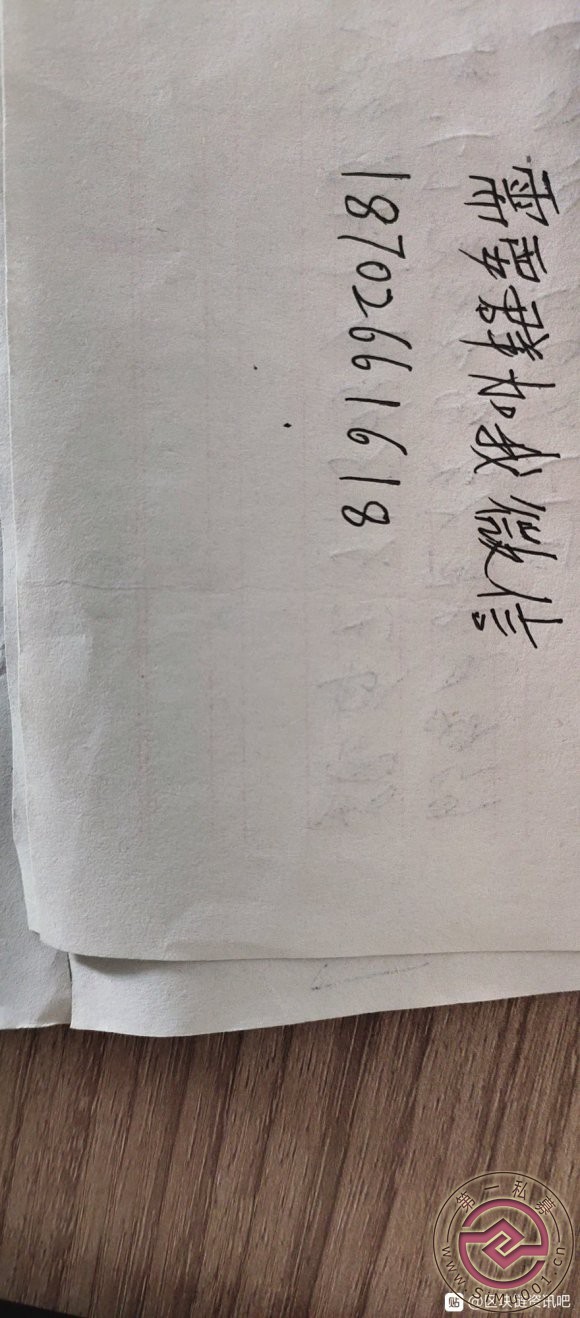 需要群加我微信
18702661618
第一私募
www.simu001.cn
贴 @区块链资讯吧